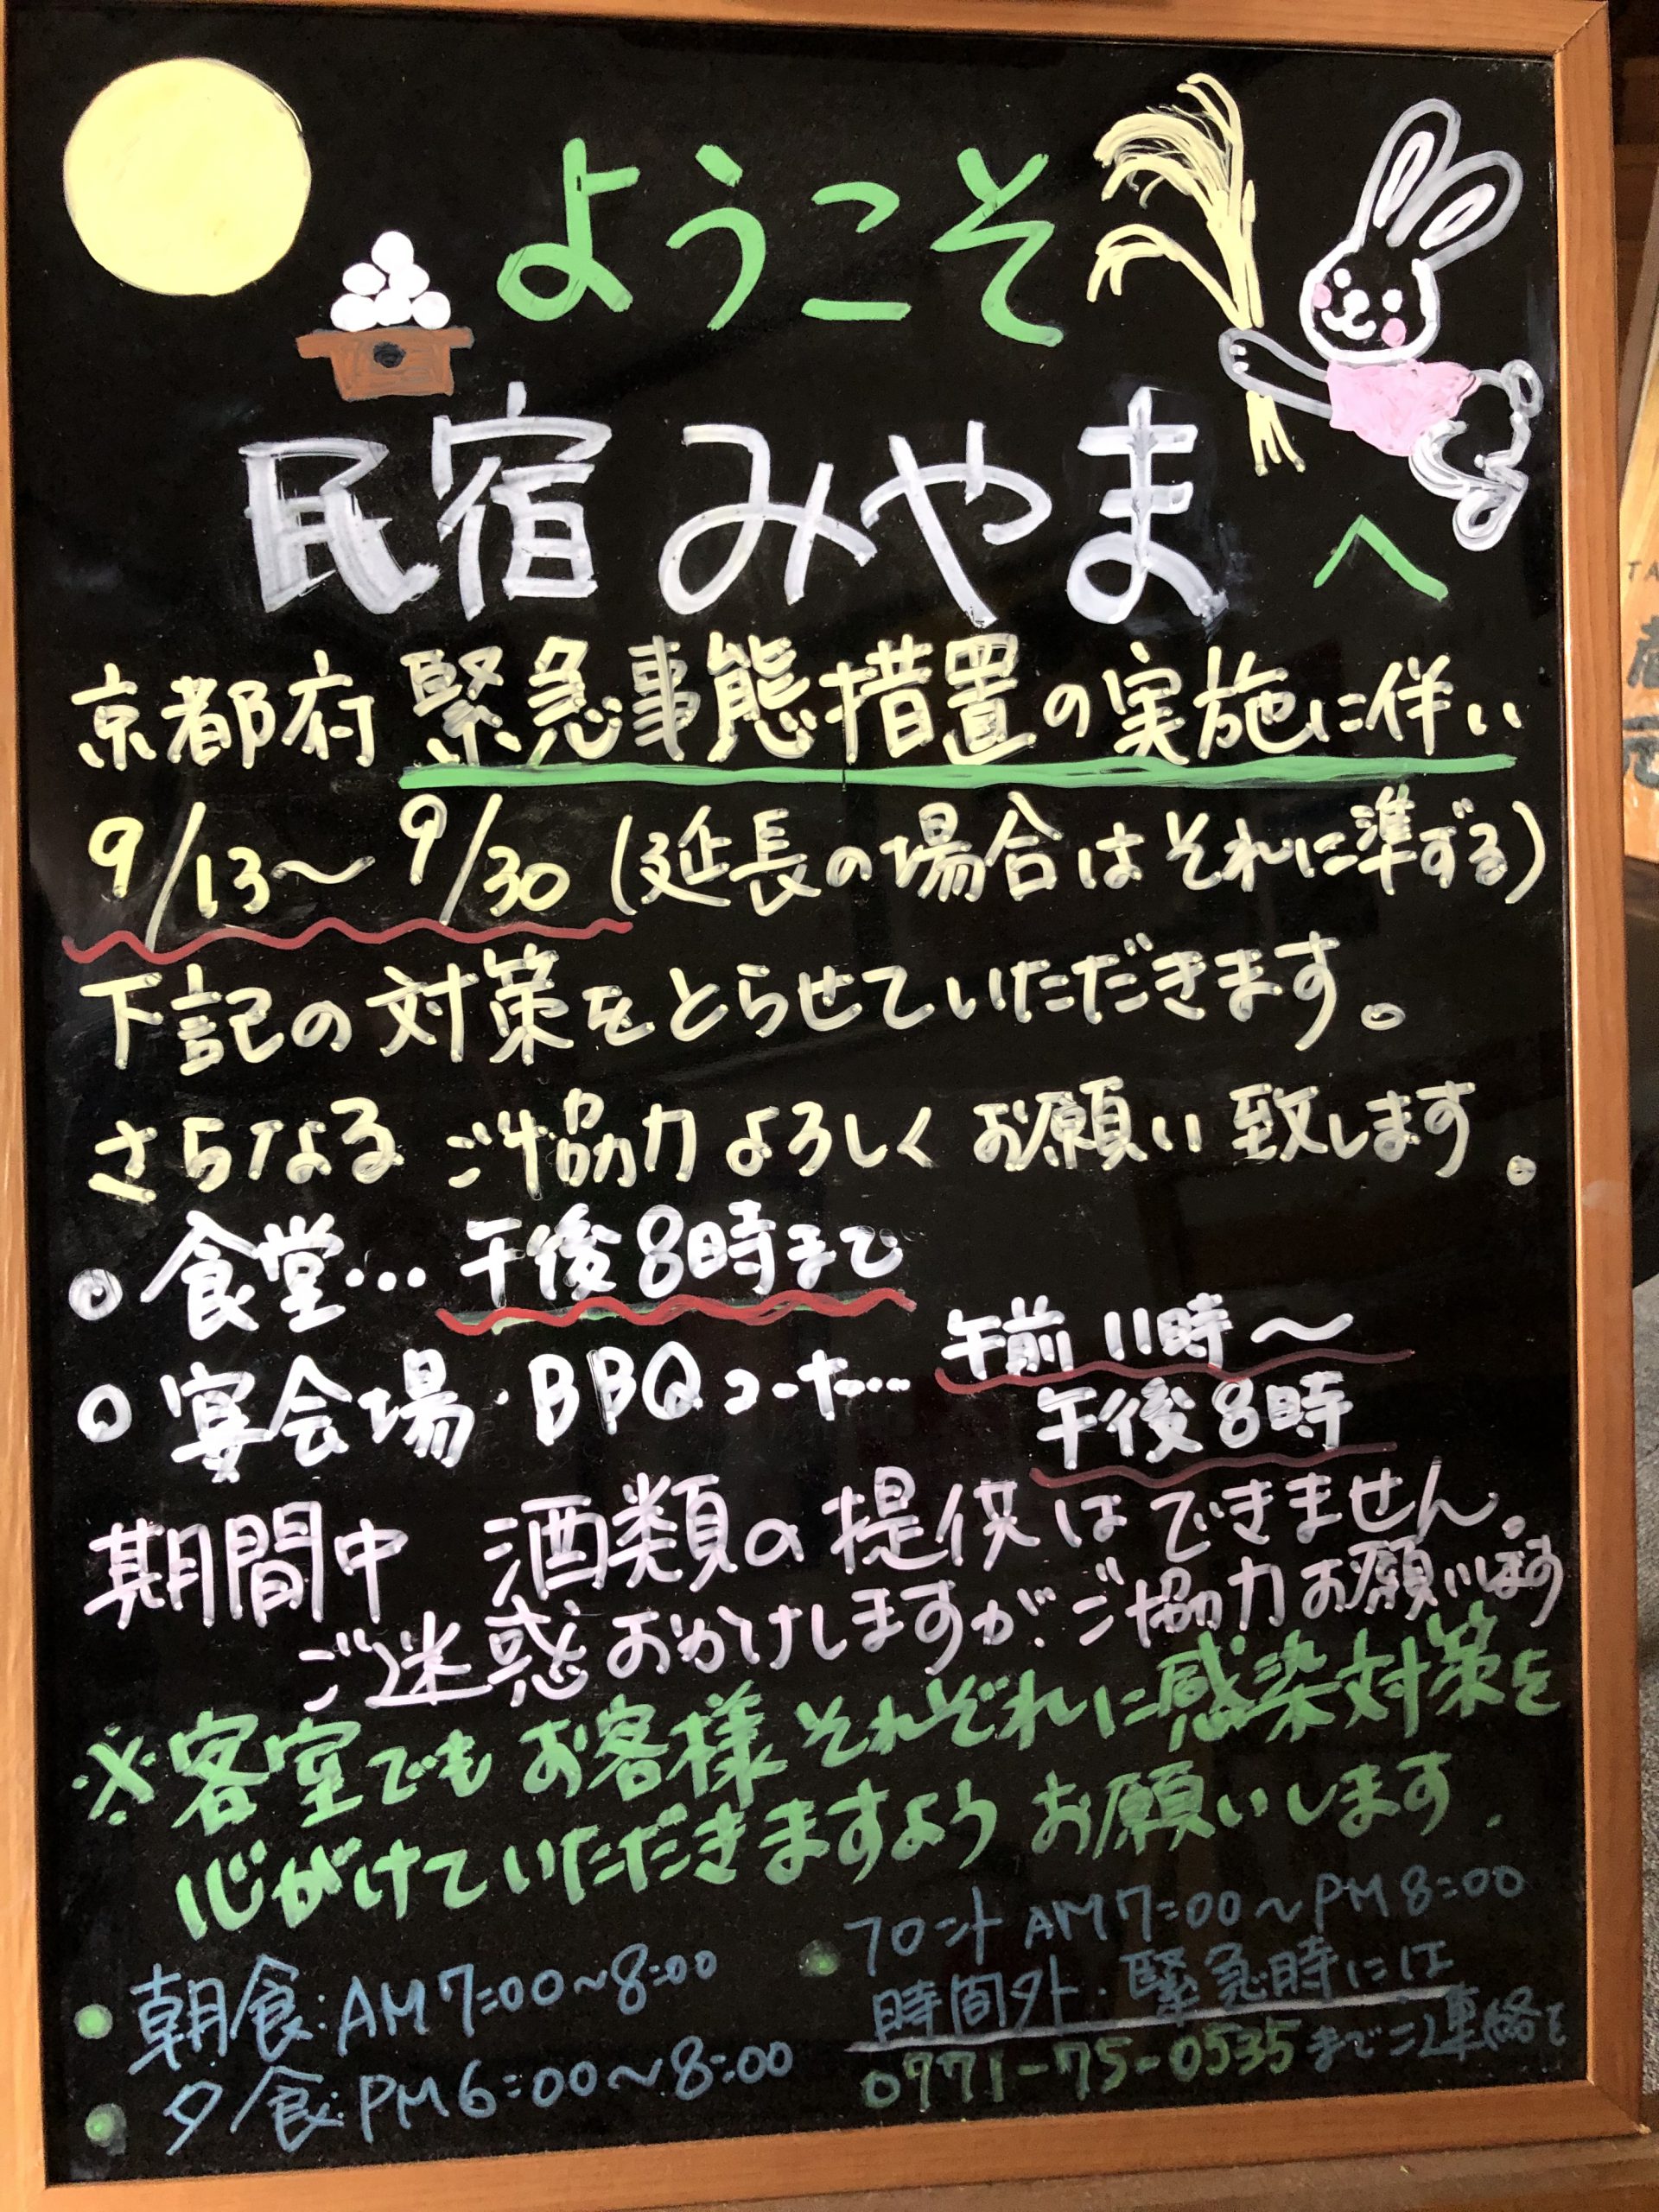 ようこそ
民宿 みやま へ
京都府 緊急事態措置の実施に伴い
9/13〜9/30 (延長の場合はそれに準ずる)
下記の対策をとらせていただきます。
さらなる ご協力 よろしく お願い 致します。
○ 食堂… 午後8時まで
○ 宴会場・BBQコーナー… 午前 11時〜
午後8時
期間中 酒類の提供はできません。
ご迷惑おかけしますが、ご協力お願いします
※客室でもお客様それぞれに感染対策を
心がけていただきますよう お願いします.
● 朝食:AM7:00〜8:00
● 夕食:PM6:00〜8:00
● フロント AM7:00〜PM8:00
時間外・緊急時には
0771-75-0535までご連絡を